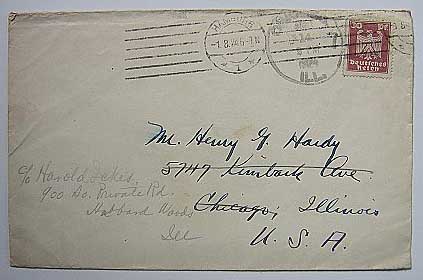 HAMBURG
-1.8.24 6-7 N
ILL.
30 Pf
Deutsches
Reich
Mr. Henry G. Hardy
5747 Kimbark Ave.
Chicago, Illinois
U. S. A.
c/o Harold Ickes,
900 So. Private Rd.
Hubbard Woods
Ill